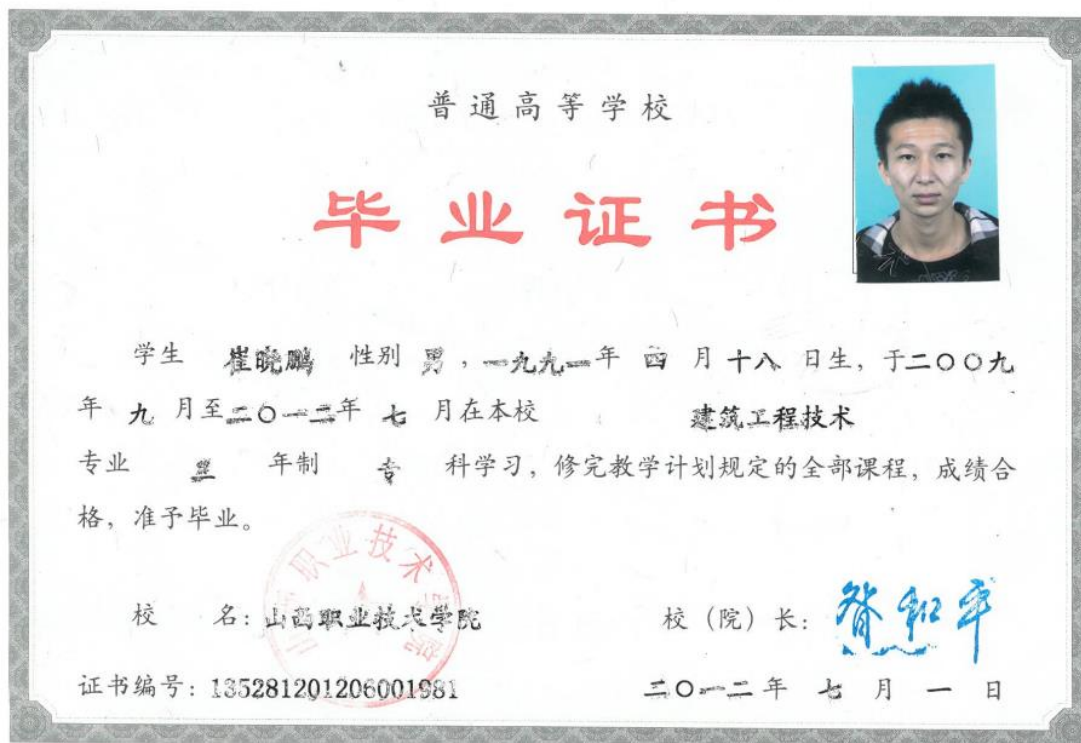 普通高等学校
毕业证书
学生 崔晓鹏 性别 男，一九九一年 四 月 十八 日生，于二〇〇九
年 九 月至二〇一二年 七 月在本校 建筑工程技术
专业 三 年制 专 科学习，修完教学计划规定的全部课程，成绩合
格，准予毕业。
校 名：山西职业技术学院
校（院）长：
证书编号：135281201206001981
二〇一二年 七 月 一 日